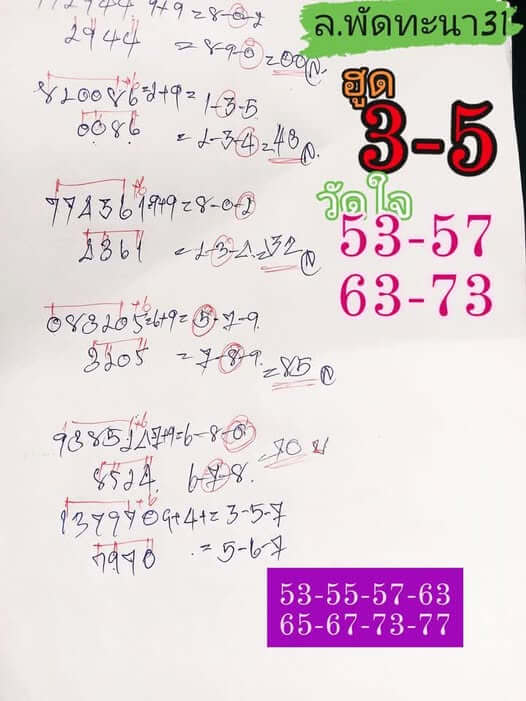 ล.พัดทะนา31
2944
=8-9-0=00 ก.
ฮูด
3-5
820086=2+9= 1-3-5
0086
=2-3-4=43 ก.
วัดใจ
53-57
63-73
=8-0-2
2361
083205=6+9=5-7-9.
3205
=7-8-9.
=85 ก
938524
=6-8-0
70 บ
8524
6-7-8.
137970 9+4+= 3-5-7
7970
=5-6-7
53-55-57-63
65-67-73-77